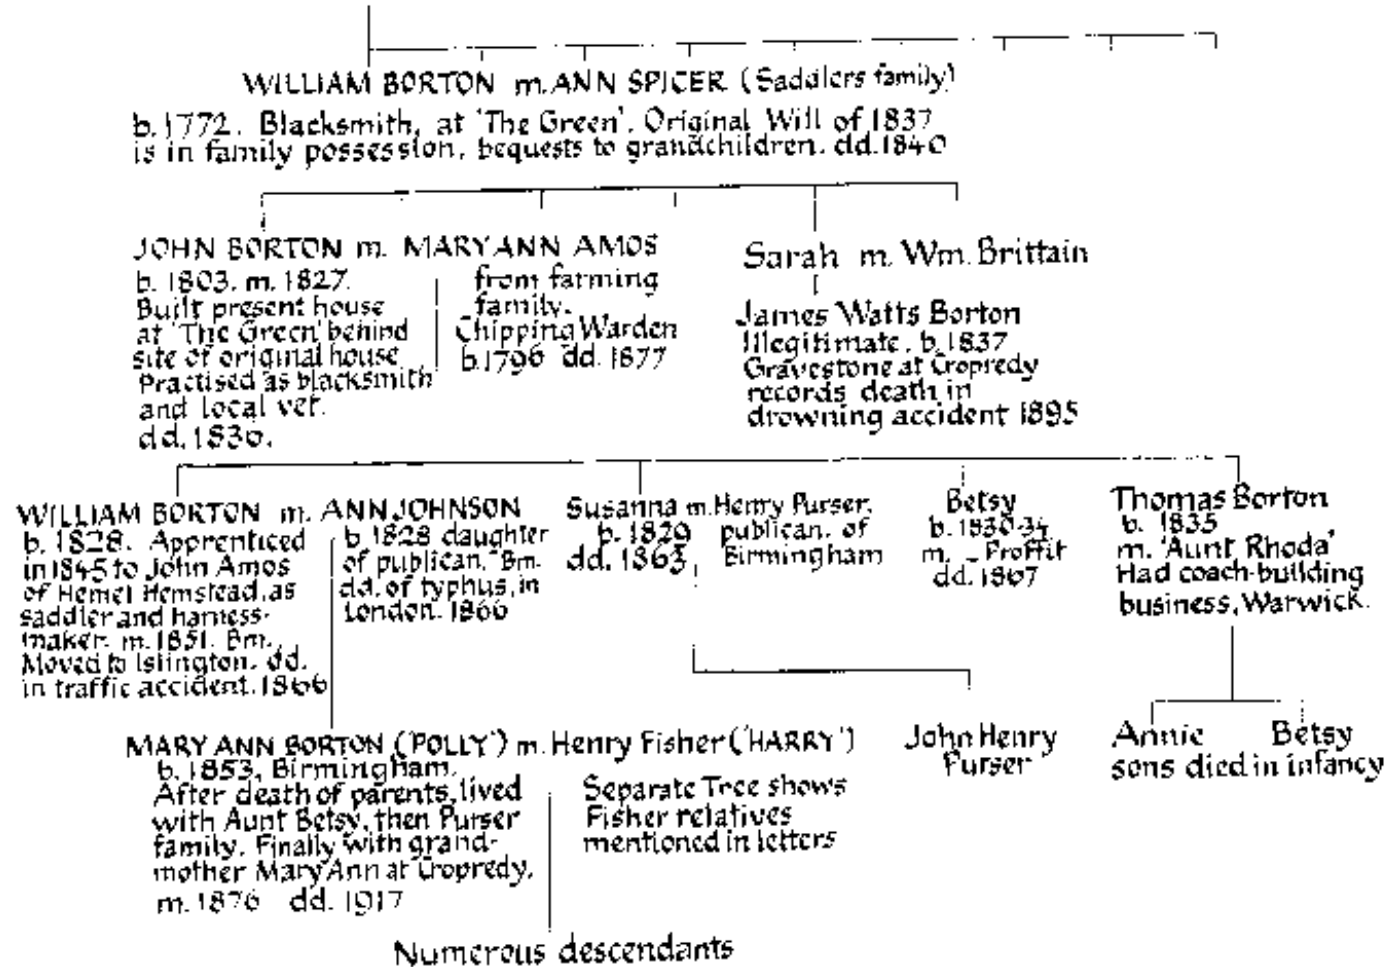 WILLIAM BORTON m. ANN SPICER (Saddlers family)
b. 1772. Blacksmith, at 'The Green'. Original Will of 1837
is in family possession, bequests to grandchildren. dd. 1840
JOHN BORTON m. MARY ANN AMOS
b. 1803. m. 1827.
Built present house
at 'The Green' behind
site of original house
Practised as blacksmith
and local vet.
dd. 1836.
from farming
family.
Chipping Warden
b. 1796 dd. 1877
Sarah m. Wm. Brittain
James Watts Borton
Illegitimate. b. 1837
Gravestone at Cropredy
records death in
drowning accident 1895
WILLIAM BORTON m. ANN JOHNSON
b. 1828. Apprenticed
in 1845 to John Amos
of Hemel Hemstead, as
saddler and harness-
maker. m. 1851. Bm.
Moved to Islington. dd.
in traffic accident. 1866
b. 1828 daughter
of publican. Bm.
dd. of typhus, in
London. 1866
Susanna m. Henry Purser,
b. 1829
dd. 1863
publican, of
Birmingham
Betsy
b. 1830-34
m. _ Proffit
dd. 1867
Thomas Borton
b. 1835
m. 'Aunt Rhoda'
Had coach-building
business, Warwick.
MARY ANN BORTON ('POLLY') m. Henry Fisher ('HARRY')
b. 1853, Birmingham.
After death of parents, lived
with Aunt Betsy, then Purser
family. Finally with grand-
mother Mary Ann at Cropredy.
m. 1876 dd. 1917
Separate Tree shows
Fisher relatives
mentioned in letters
John Henry
Purser
Annie Betsy
sons died in infancy
Numerous descendants